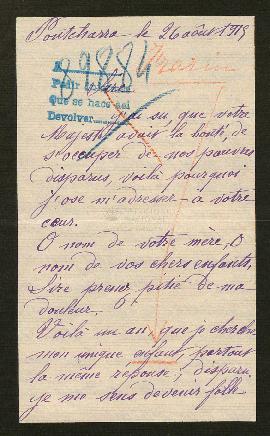 Pontcharra - le 26 août 1915
89884
Pedir
que se hace así
Devolver
J'ai su, que votre
Majesté avait la bonté, de
s'occuper de nos pauvres
disparus, voilà pourquoi
j'ose m'adresser à votre
cœur.
O nom de votre mère, O
nom de vos chers enfants,
Sire prenez pitié de ma
douleur.
Voilà un an, que je cherche
mon unique enfant, partout
la même reponse; disparu
je me sens devenir folle